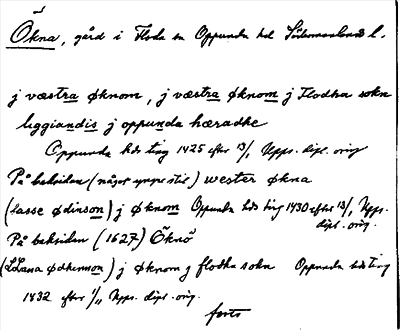 Ökna, gård i Floda sn Oppunda hd Södermanlands l.
j væstra øknom, j væstra øknom j Flodha sokn
liggiandis j oppunda hæradhe
Oppunda hds ting 1425 efter 13/1 Upps. dipl. orig.
På baksidan (något yngre stil) wester økna
(lasse ødinson) j øknom Oppunda hds ting 1430 efter 13/1 Upps. dipl. orig.
På baksidan (1627) Öknö
j øknom j flodha sokn Oppunda hds ting
1432 efter 1/11 Upps. dipl. orig.
forts